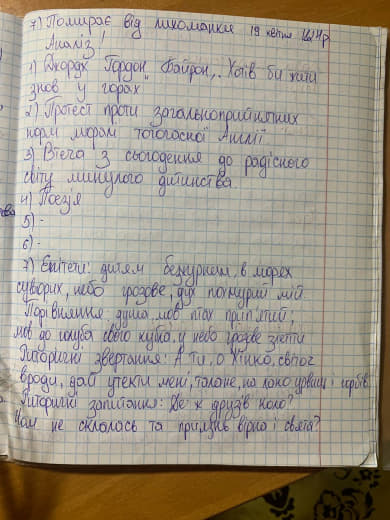 7) Помирає від лихоманки 19 квітня 1824р
Аналіз!
1) Джордж Гордон Байрон „Хотів би жити
знов у горах"
2) Протест проти загальноприйнятних
норм моралі тогочасної Англії
3) Втеча з сьогодення до радісного
світу минулого дитинства
4) Поезія
5) -
6) -
7) Епітети: дитям безжурним, в морех
суворих, небо грозове, дух похмурий мій
Порівняння: душа, мов птах прип'ятий;
мов до голуба свого кубла, у небо грозове злетіти
Риторичні звертання: А ти, о Жінко, світоч
вроди, дай утекти мені, талане, на лоно урвищ і горбів.
Риторичні запитання: Де ж друзів коло?
Чом не склалась та приязнь вірна і свята?